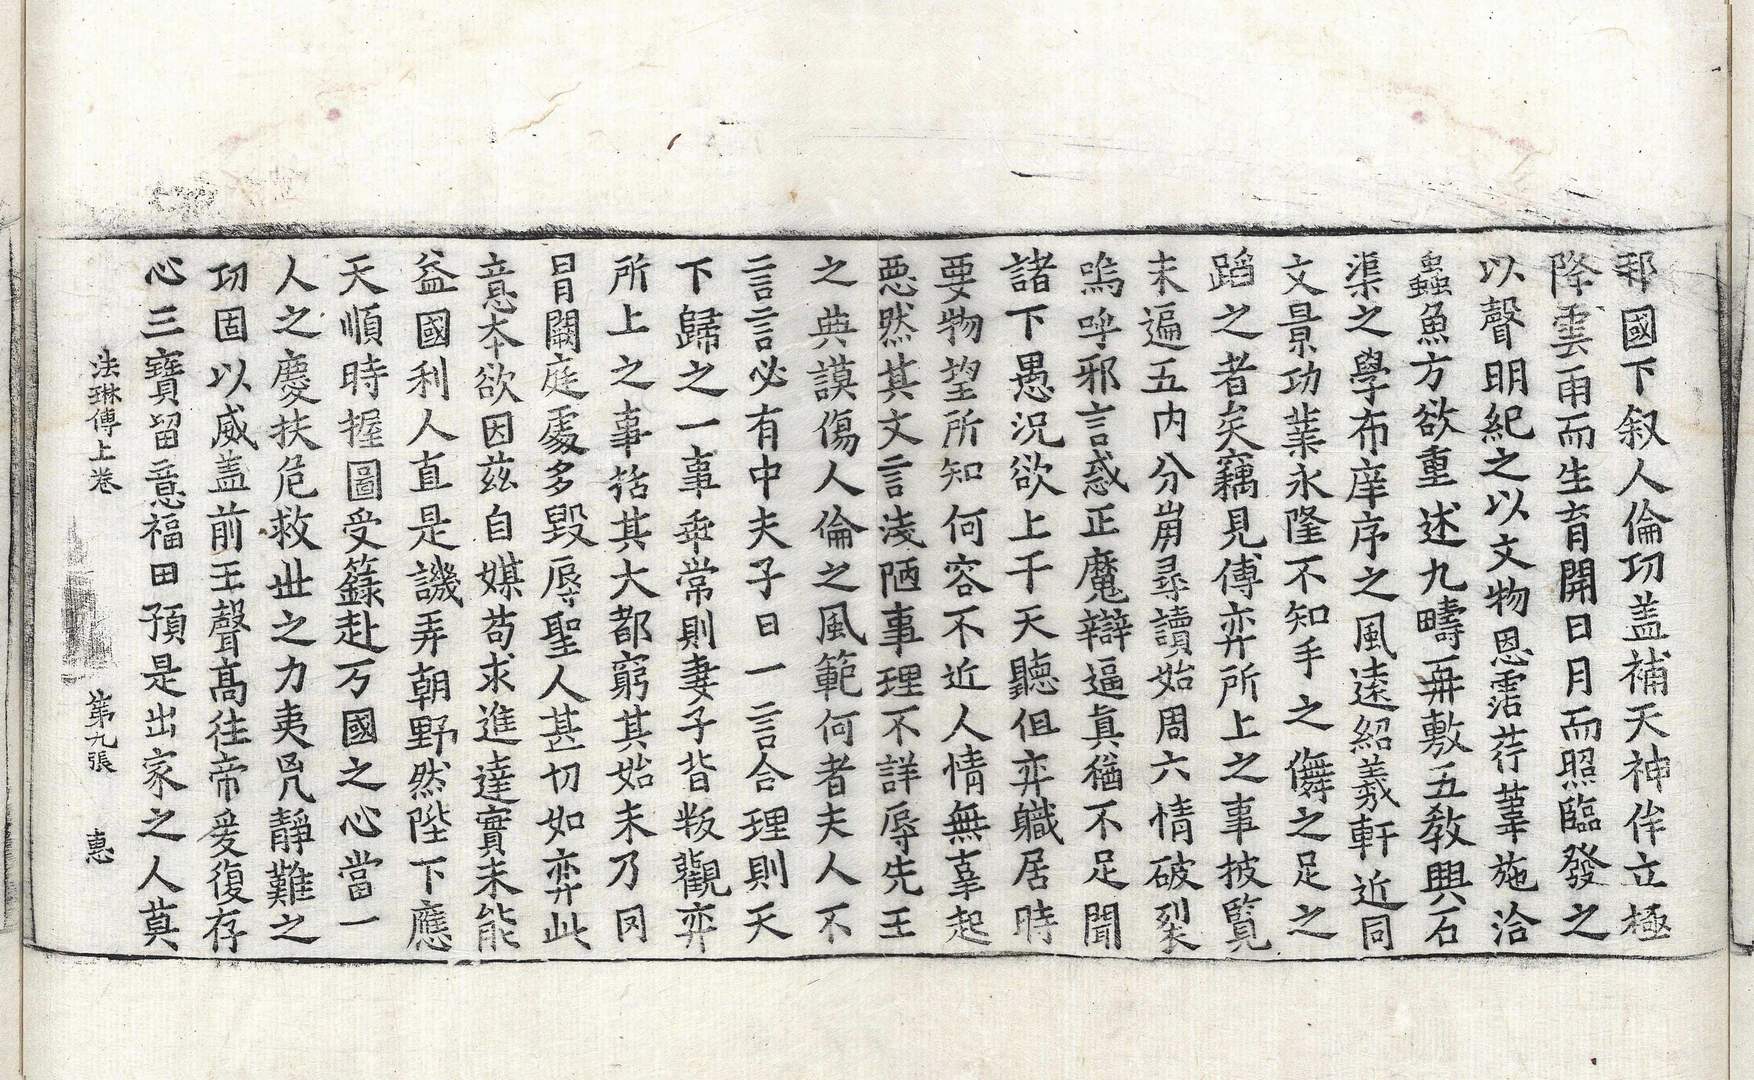 邪國下叙人倫功盖補天神侔立極
降雲雨而生育開日月而照臨發之
以聲明紀之以文物恩霑荇葦施洽
蟲魚方欲重述九疇再敷五教興石
渠之學布庠序之風遠紹羲軒近同
文景功業永隆不知手之儛之足之
蹈之者矣竊見傅弈所上之事披覽
未遍五内分崩尋讀始周六情破裂
嗚呼邪言惑正魔辯逼真猶不足聞
諸下愚況欲上千天聽但弈職居時
要物望所知何容不近人情無辜起
惡然其文言淺陋事理不詳辱先王
之典謨傷人倫之風範何者夫人不
言言必有中夫子曰一言合理則天
下歸之一事乖常則妻子皆叛觀弈
所上之事括其大都窮其始末乃冈
冒闕庭處多毀辱聖人甚切如弈此
意本欲因兹自媒苟求進達實未能
益國利人直是譏弄朝野然陛下應
天順時握圖受籙赴万國之心當一
人之慶扶危救世之力夷凶靜難之
功固以威盖前王聲高往帝爰復存
心三寶留意福田預是出家之人莫
法琳傳上卷　第九張　惠